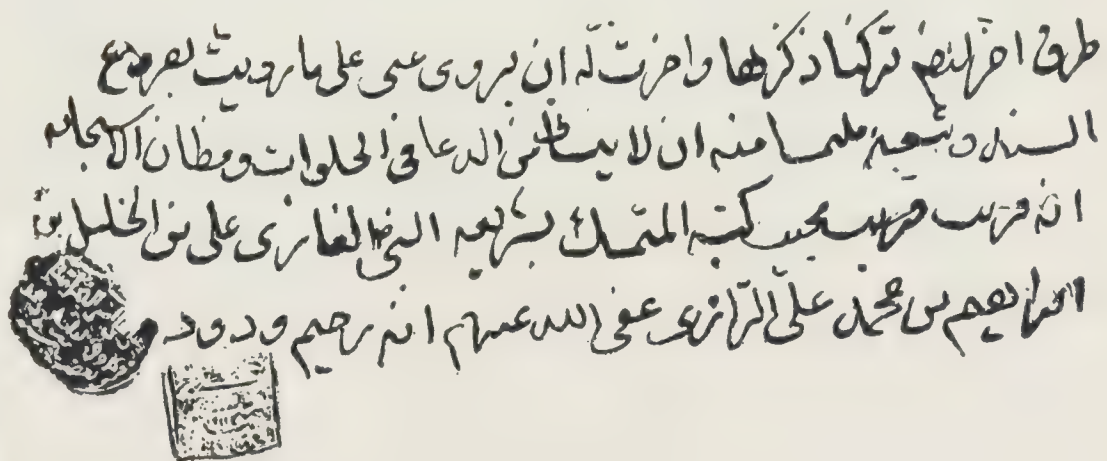 طرق اخر لبعضهم تركنا ذكرها واجزت له ان يروى عنى على ما رويت
السند ملتمسا منه ان لا ينسانى من الدعا فى الخلوات ومظان الاستجابه
انه قريب مجيب كتبه المتمسك بشريعه النبى الغازى على بن الخليل بن
ابراهيم بن محمد على الرازى عفى الله عنهم انه رحيم ودود